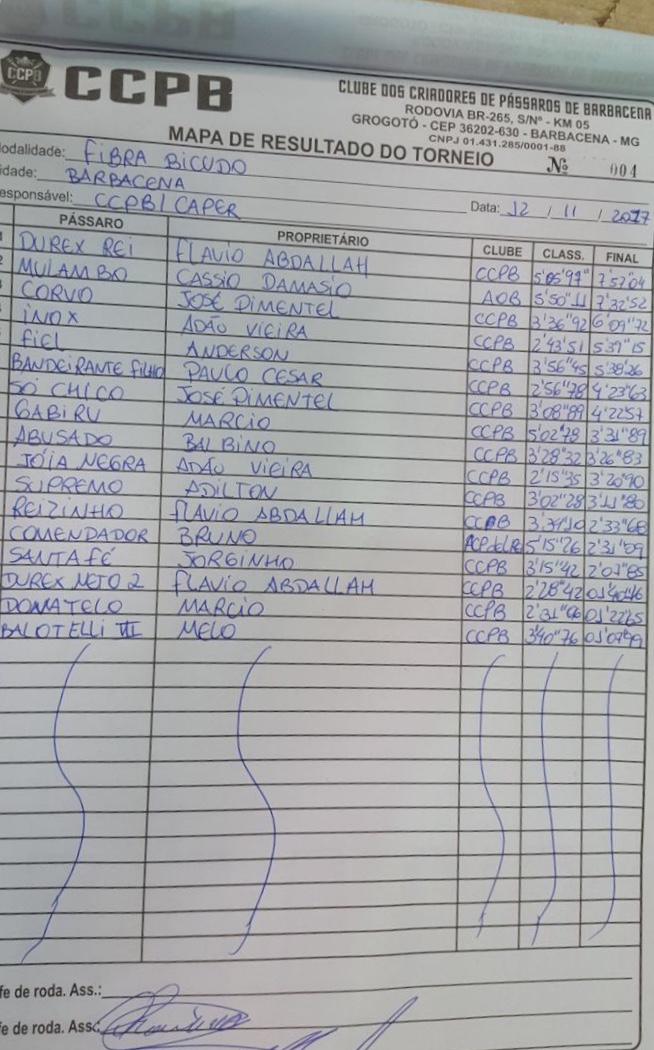 CCPB CCPB
CLUBE DOS CRIADORES DE PÁSSAROS DE BARBACENA
RODOVIA BR-265, S/Nº - KM 05
GROGOTÓ - CEP 36202-630 - BARBACENA - MG
CNPJ 01.431.285/0001-88
MAPA DE RESULTADO DO TORNEIO Nº 004
odalidade: FIBRA BICUDO
idade: BARBACENA
esponsável: CCPB/CAPER Data: 12 / 11 / 2017
PÁSSARO PROPRIETÁRIO CLUBE CLASS. FINAL
DUREX REI FLAVIO ABDALLAH CCPB 7'57"04
MULAMBO CASSIO DAMASIO AOB 5'50"11 7'32"52
CORVO JOSÉ PIMENTEL CCPB 3'36"92 6'09"72
INOX ADÃO VIEIRA CCPB 2'43'51 5'39"15
FIEL ANDERSON CCPB 3'56"45 5'38"26
BANDEIRANTE FILHO PAULO CESAR CCPB 2'56"78 4'23"63
SÓ CHICO JOSÉ PIMENTEL CCPB 3'08"89 4'22"57
GABIRU MARCIO CCPB 5'02"78 3'31"89
ABUSADO BALBINO CCPB 3'28"32 3'26"83
JÓIA NEGRA ADÃO VIEIRA CCPB 2'15"35 3'20"90
SUPREMO ADILTON CCPB 3'02"28 3'11"80
REIZINHO FLAVIO ABDALLAH CCPB 2'33"68
COMENDADOR BRUNO 5'15"26 2'31"09
SANTA FÉ JORGINHO CCPB 3'15"42 2'07"85
DUREX NETO 2 FLAVIO ABDALLAH CCPB 2'28"42 01'40"46
DOMATELO MARCIO CCPB 2'31"06 01'22"65
BALOTELLI VII MELO CCPB 3'40"76 01'07"99
fe de roda. Ass.:
fe de roda. Ass